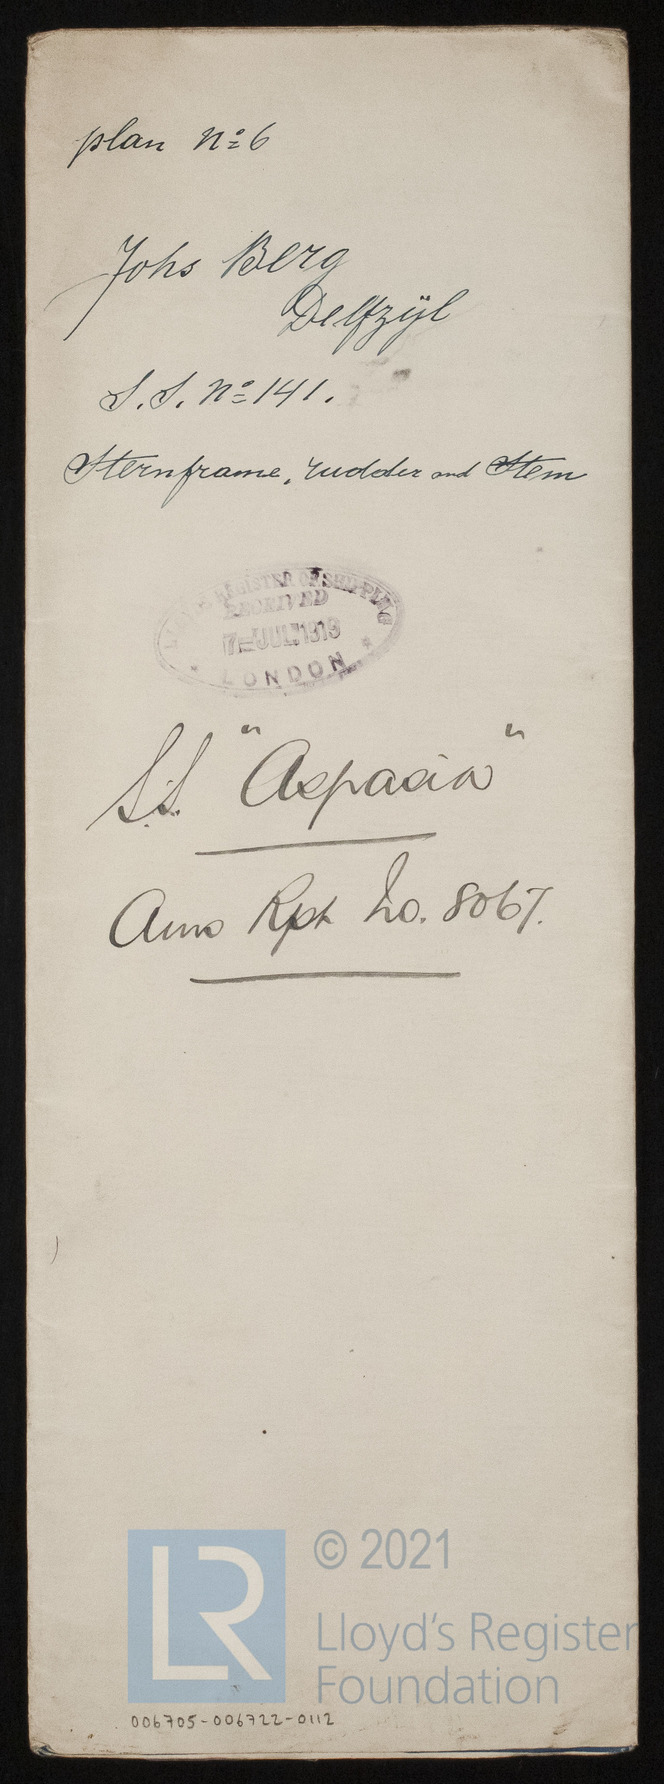 plan No 6
Johs Berg
Delfzÿl
S.S. No 141.
Sternframe, rudder and Stem
LLOYD'S REGISTER OF SHIPPING
RECEIVED
7-JUL 1919
* LONDON *
S.S. "Aspasia"
Ams Rpt No. 8067.
LR
© 2021
Lloyd's Register
Foundation
006705-006722-0112